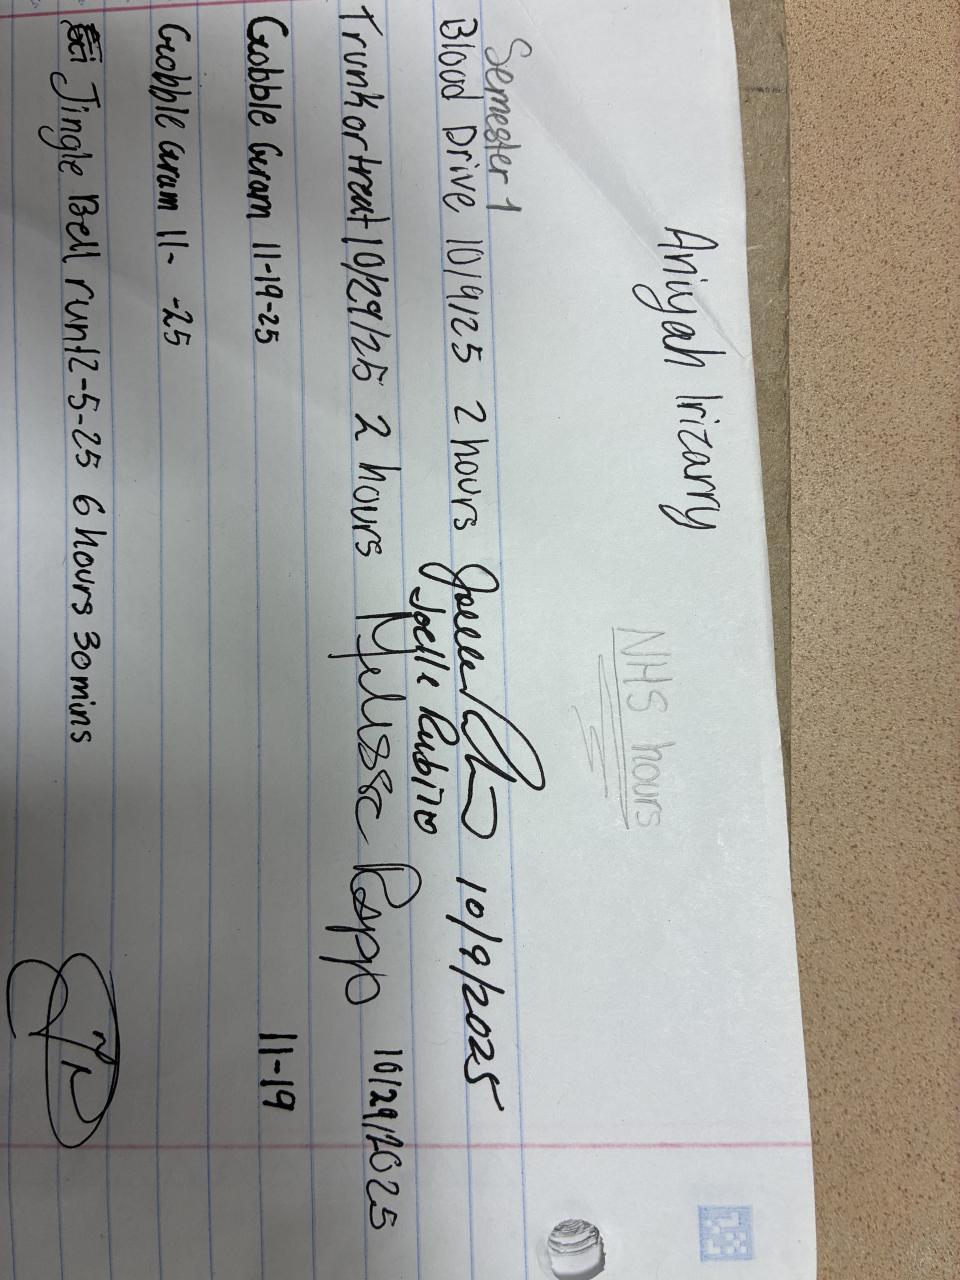 Aniyah Irizarry
NHS hours
Semester 1
Blood Drive 10/9/25 2 hours 10/9/2025
Joelle Rubino
Trunk or treat 10/29/25 2 hours Melissa Rapp 10/29/2025
Gobble Gram 11-19-25 11-19
Gobble Gram 11- -25
Jingle Bell run 12-5-25 6 hours 30mins